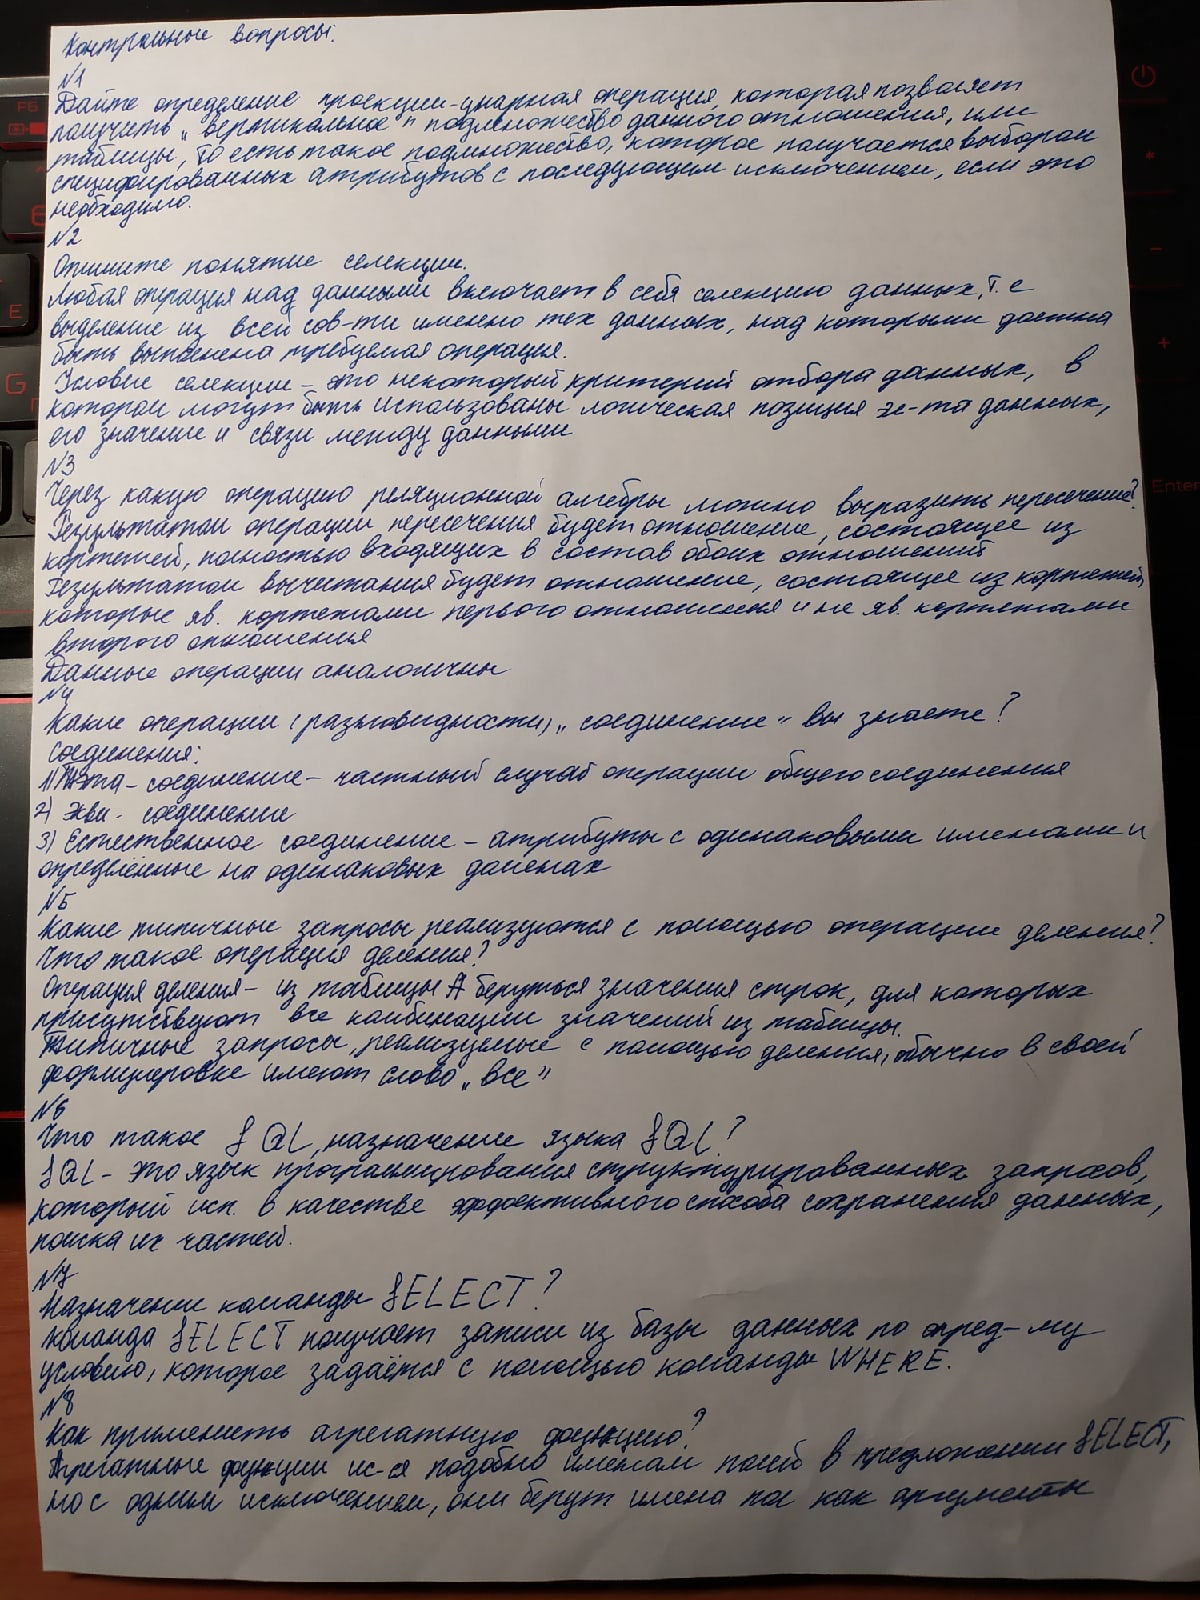 Контрольные вопросы.
№1
Дайте определение проекции-унарная операция, которая позволяет
получить „вертикальное" подмножество данного отношения, или
таблицы, то есть такое подмножество, которое получается выбором
специфированных атрибутов с последующим исключением, если это
необходимо.
№2
Опишите понятие селекции.
Любая операция над данными включает в себя селекцию данных, т.е
выделение из всей сов-ти именно тех данных, над которыми должна
быть выполнена требуемая операция.
Условие селекции - это некоторый критерий отбора данных, в
котором могут быть использованы логическая позиция эл-та данных,
его значение и связи между данными
№3
Через какую операцию реляционной алгебры можно выразить пересечение?
Результатом операции пересечения будет отношение, состоящее из
кортежей, полностью входящих в состав обоих отношений
Результатом вычитания будет отношение, состоящее из кортежей,
которые яв. кортежами первого отношения и не яв. кортежами
второго отношения
Данные операции аналогичны
№4
Какие операции (разновидности) „соединение" вы знаете?
Соединения:
1) Тэта - соединение - частный случай операции общего соединения
2) Экви - соединение
3) Естественное соединение - атрибуты с одинаковыми именами и
определённые на одинаковых доменах
№5
Какие типичные запросы реализуются с помощью операции деления?
Что такое операция деления?
Операция деления - из таблицы А беруться значения строк, для которых
присутствуют все комбинации значений из таблицы.
Типичные запросы, реализуемые с помощью деления, обычно в своей
формулировке имеют слово „все"
№6
Что такое SQL, назначение языка SQL?
SQL - это язык программирования структурированных запросов,
который исп. в качестве эффективного способа сохранения данных,
поиска их частей.
№7
Назначение команды SELECT?
Команда SELECT получает записи из базы данных по опред-му
условию, которое задаётся с помощью команды WHERE.
№8
Как применить агрегатную функцию?
Агрегатные функции ис-ся подобно именам полей в предложении SELECT,
но с одним исключением, они берут имена пол как аргументы